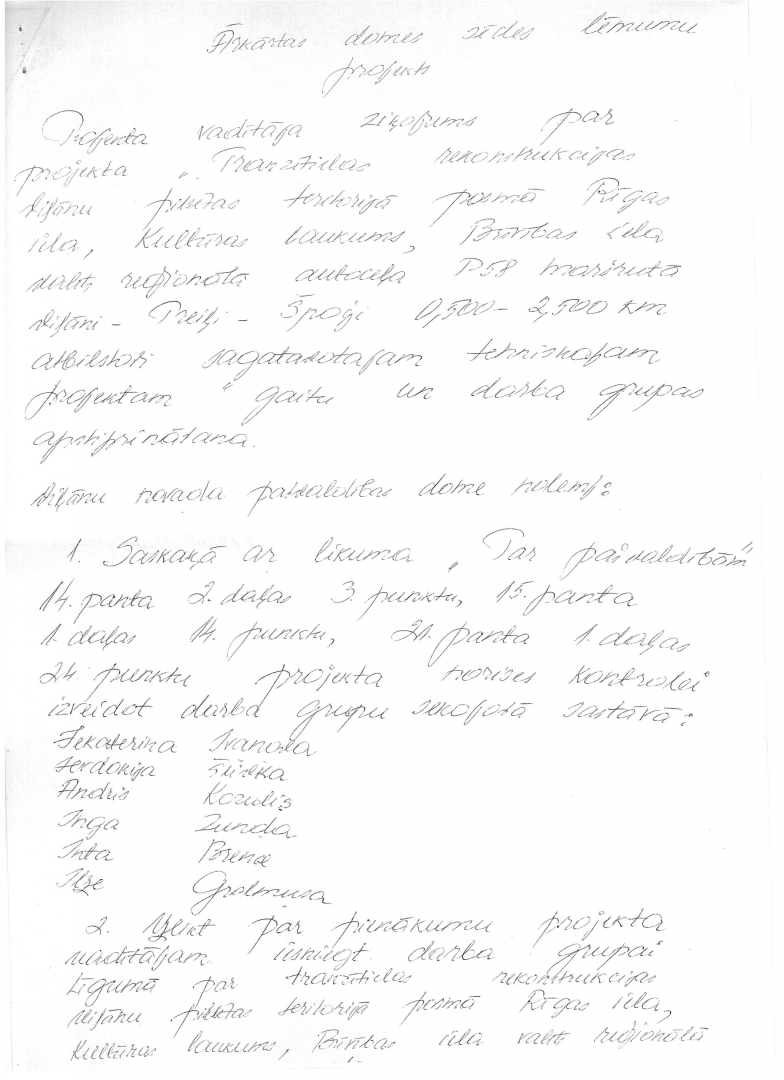 Ārkārtas domes sēdes lēmumu
projekts
Projekta vadītāja ziņojums par
projekta „Tranzītielas rekonstrukcijas
Viļānu pilsētas teritorijā posmā Rīgas
iela, Kultūras laukums, Brīvības iela
valsts reģionālā autoceļa P58 maršrutā
Viļāni - Preiļi - Špoģi 0,500 - 2,500 km
atbilstoši sagatavotajam tehniskajam
projektam" gaitu un darba grupas
apstiprināšana.
Viļānu novada pašvaldības dome nolemj:
1. Saskaņā ar likuma „Par pašvaldībām"
14. panta 2. daļas 3. punktu, 15. panta
1. daļas 14. punktu, 21. panta 1. daļas
24. punktu projekta norises kontrolei
izveidot darba grupu sekojošā sastāvā:
Jekaterina Ivanova
Jevdokija
Andris Kozulis
Inga Zunda
Inta Brence
Ilze
2. Uzlikt par pienākumu projekta
vadītājam iesniegt darba grupai
Līgumā par tranzītielas rekonstrukcijas
Viļānu pilsētas teritorijā posmā Rīgas iela,
Kultūras laukums, Brīvības iela valsts reģionālā